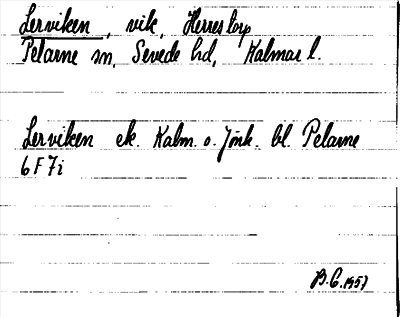 Lerviken, vik, Herrestorp
Pelarne sn, Sevede hd, Kalmar l.
Lerviken ek. Kalm. o. Jönk. bl. Pelarne
6 F 7 i
B.G. 1957